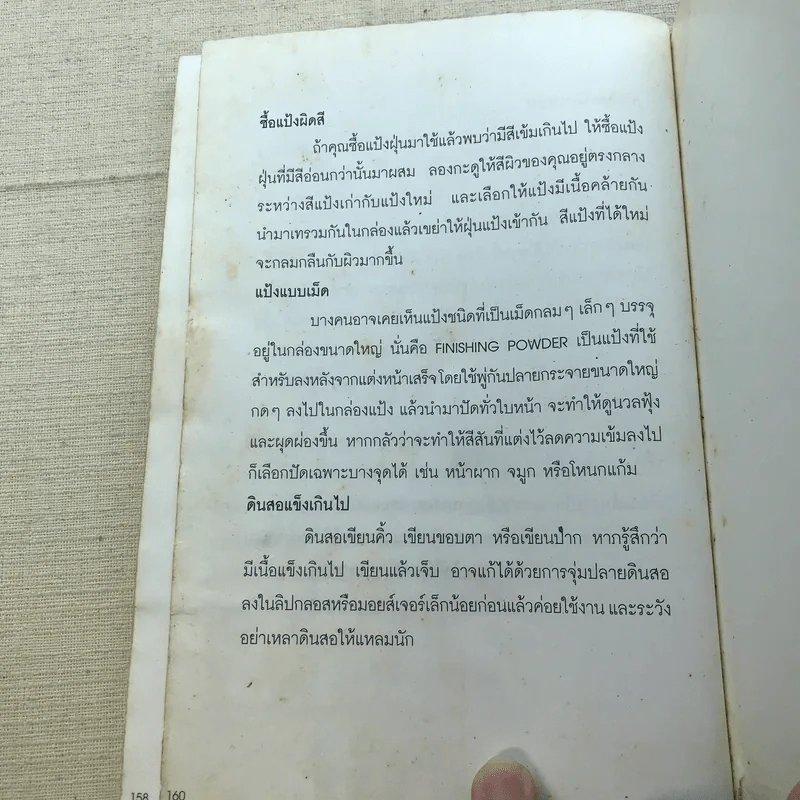 ซื้อแป้งผิดสี
ถ้าคุณซื้อแป้งฝุ่นมาใช้แล้วพบว่ามีสีเข้มเกินไป ให้ซื้อแป้ง
ฝุ่นที่มีสีอ่อนกว่านั้นมาผสม ลองกะดูให้สีผิวของคุณอยู่ตรงกลาง
ระหว่างสีแป้งเก่ากับแป้งใหม่ และเลือกให้แป้งมีเนื้อคล้ายกัน
นำมาเทรวมกันในกล่องแล้วเขย่าให้ฝุ่นแป้งเข้ากัน สีแป้งที่ได้ใหม่
จะกลมกลืนกับผิวมากขึ้น
แป้งแบบเม็ด
บางคนอาจเคยเห็นแป้งชนิดที่เป็นเม็ดกลมๆ เล็กๆ บรรจุ
อยู่ในกล่องขนาดใหญ่ นั่นคือ FINISHING POWDER เป็นแป้งที่ใช้
สำหรับลงหลังจากแต่งหน้าเสร็จโดยใช้พู่กันปลายกระจายขนาดใหญ่
กดๆ ลงไปในกล่องแป้ง แล้วนำมาปัดทั่วใบหน้า จะทำให้ดูนวลฟุ้ง
และผุดผ่องขึ้น หากกลัวว่าจะทำให้สีสันที่แต่งไว้ลดความเข้มลงไป
ก็เลือกปัดเฉพาะบางจุดได้ เช่น หน้าผาก จมูก หรือโหนกแก้ม
ดินสอแข็งเกินไป
ดินสอเขียนคิ้ว เขียนขอบตา หรือเขียนปาก หากรู้สึกว่า
มีเนื้อแข็งเกินไป เขียนแล้วเจ็บ อาจแก้ได้ด้วยการจุ่มปลายดินสอ
ลงในลิปกลอสหรือมอยส์เจอร์เล็กน้อยก่อนแล้วค่อยใช้งาน และระวัง
อย่าเหลาดินสอให้แหลมนัก
158 160